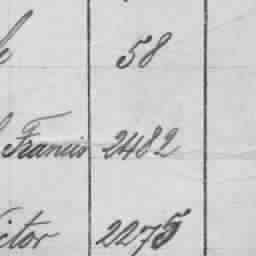 58
Francis 2482
ictor 2275